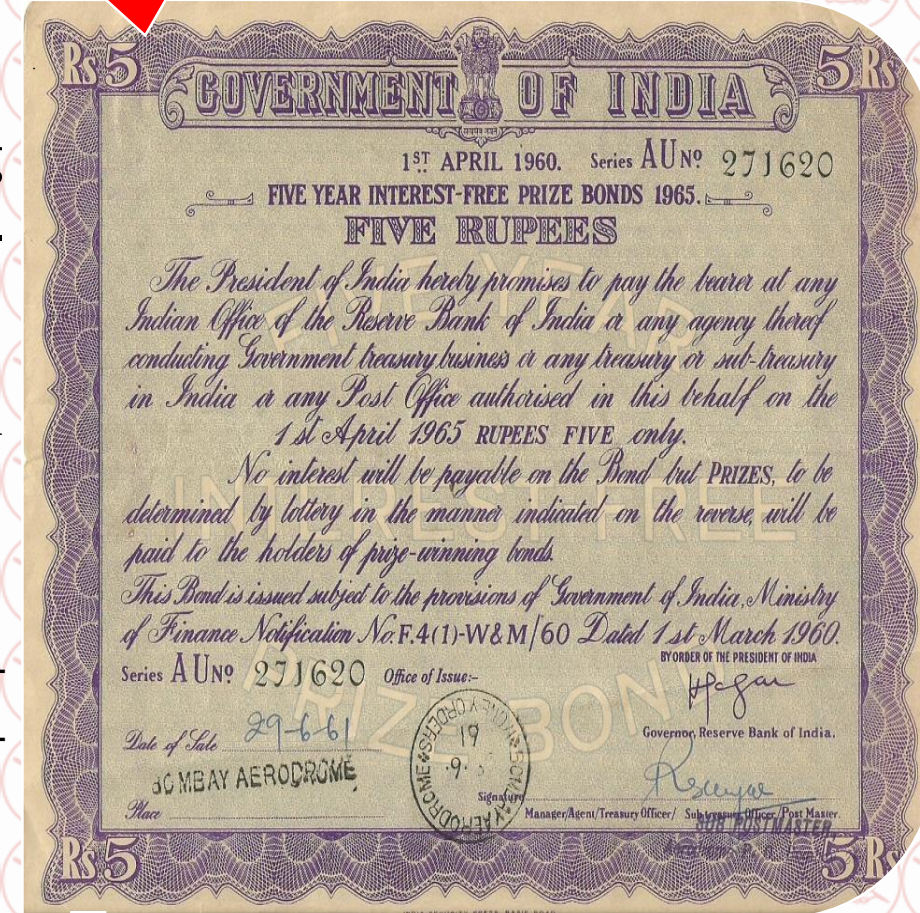 Rs 5
5 Rs
GOVERNMENT OF INDIA
सत्यमेव जयते
1ST APRIL 1960. Series AU No 271620
FIVE YEAR INTEREST-FREE PRIZE BONDS 1965.
FIVE RUPEES
The President of India hereby promises to pay the bearer at any
Indian Office of the Reserve Bank of India or any agency thereof
conducting Government treasury business or any treasury or sub-treasury
in India or any Post Office authorised in this behalf on the
1st April 1965 RUPEES FIVE only.
No interest will be payable on the Bond but PRIZES, to be
determined by lottery in the manner indicated on the reverse, will be
paid to the holders of prize-winning bonds.
This Bond is issued subject to the provisions of Government of India, Ministry
of Finance Notification No. F.4(1)-W&M/60 Dated 1st March 1960.
BY ORDER OF THE PRESIDENT OF INDIA
Series AU No 271620 Office of Issue:-
Governor, Reserve Bank of India.
Date of Sale 29-6-61
BOMBAY AERODROME
Place
MONEY ORDERS BOMBAY AERODROME
19
9
Signature
Manager/Agent/Treasury Officer/ Sub treasury Officer/Post Master.
SUB POSTMASTER
Rs 5
5 Rs
FIVE YEAR
INTEREST FREE
PRIZE BOND